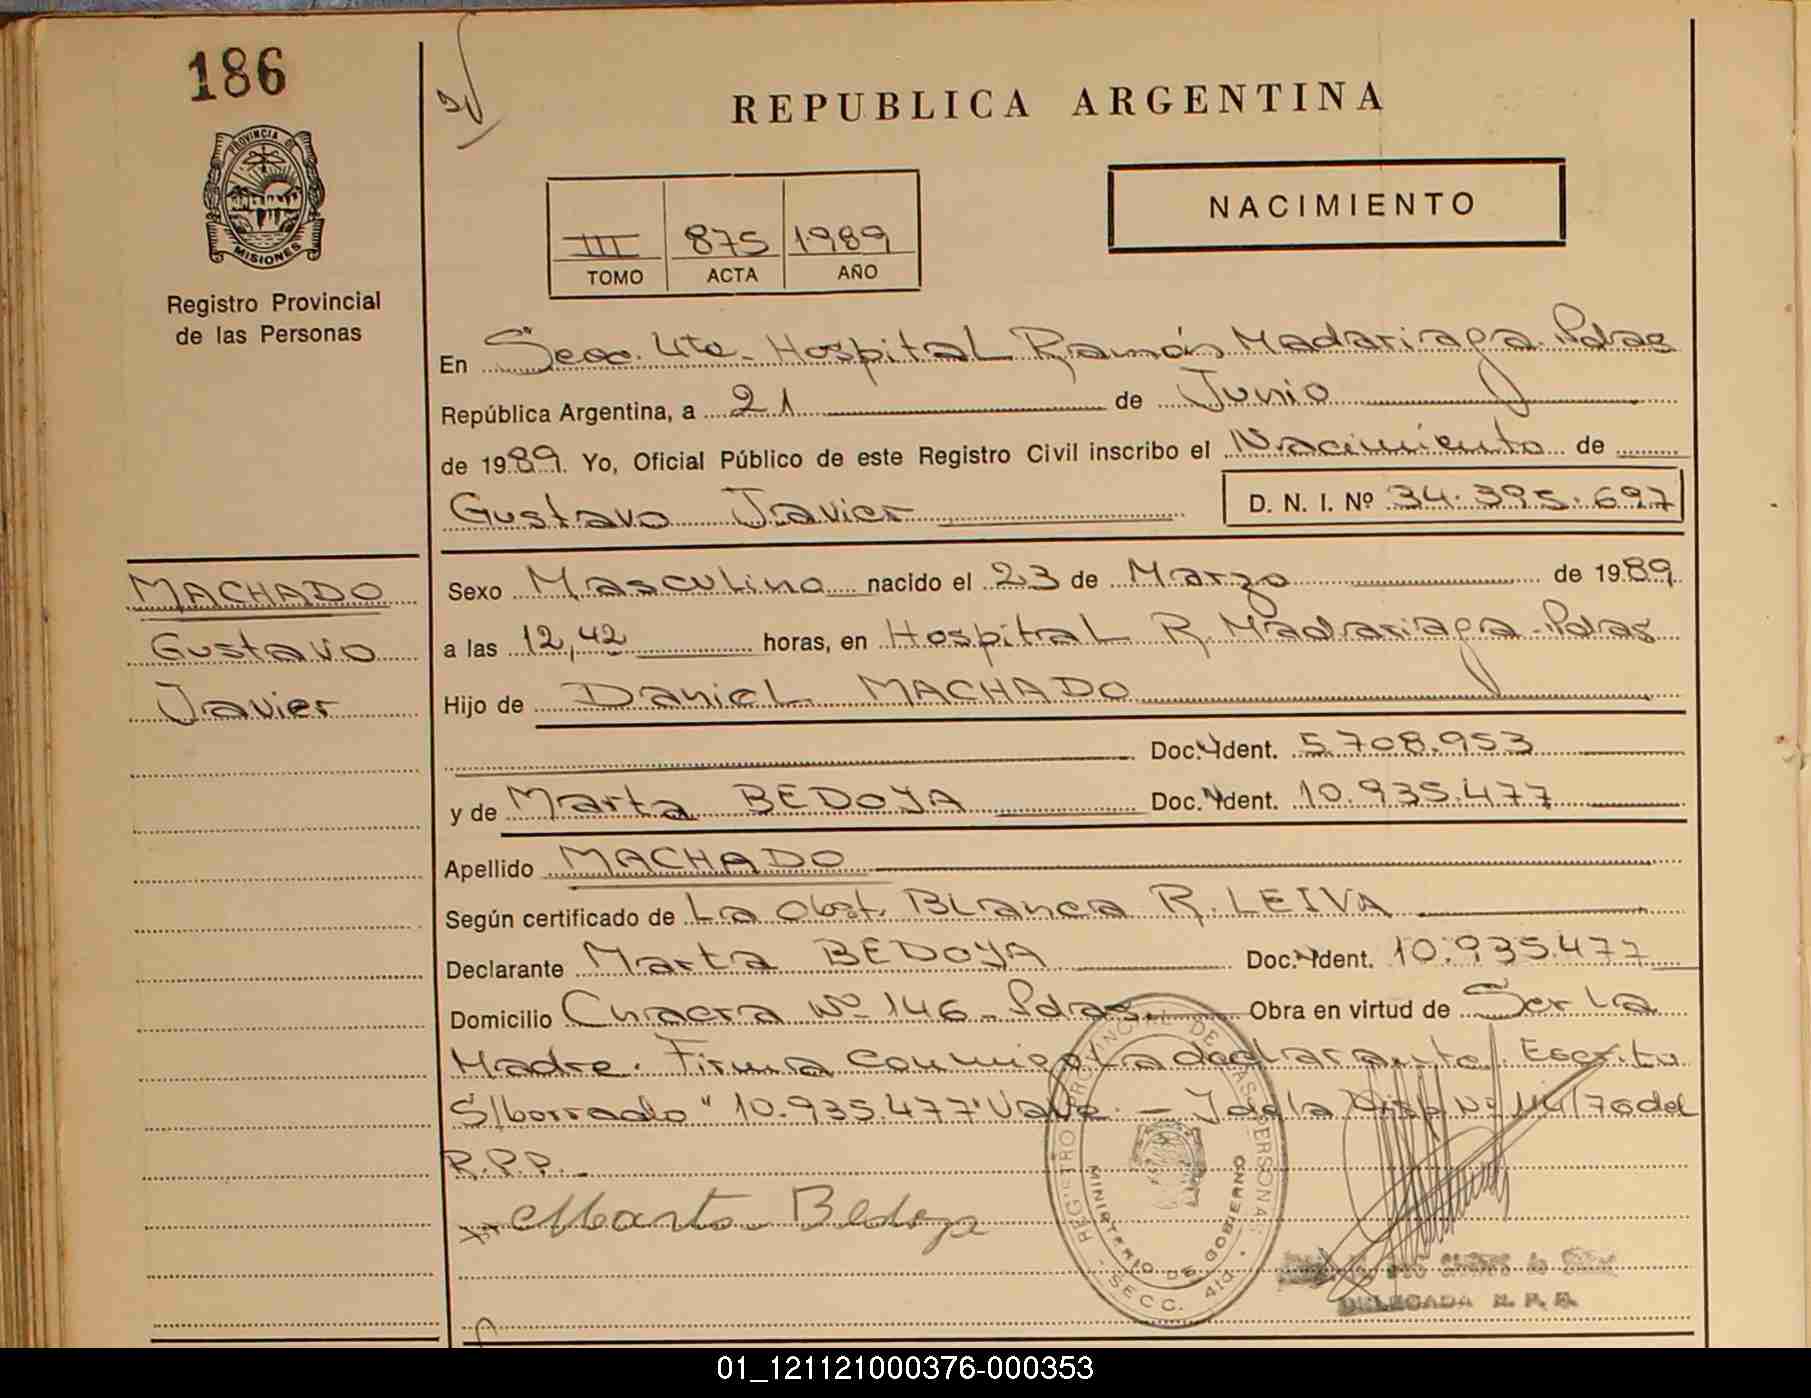 186
REPUBLICA ARGENTINA
PROVINCIA DE
MISIONES
Registro Provincial
de las Personas
NACIMIENTO
III 875 1989
TOMO ACTA AÑO
En Secc. 4ta. Hospital Ramón Madariaga. Pdas
República Argentina, a 21 de Junio
de 1989. Yo, Oficial Público de este Registro Civil inscribo el Nacimiento de
Gustavo Javier D. N. I. Nº 34.395.697
MACHADO
Gustavo
Javier
Sexo Masculino nacido el 23 de Marzo de 1989
a las 12,42 horas, en Hospital R. Madariaga - Pdas
Hijo de Daniel MACHADO
Doc. Ident. 5.708.953
y de Marta BEDOYA Doc. Ident. 10.935.477
Apellido MACHADO
Según certificado de La Obst. Blanca R. LEIVA
Declarante Marta BEDOYA Doc. Ident. 10.935.477
Domicilio Chacra Nº 146 - Pdas. Obra en virtud de Ser la
Madre. Firma conmigo la declarante. Escrito
S/borrado "10.935.477" Vale. - de la Disp Nº 114/76 del
R.P.P.
Marta Bedoya
REGISTRO PROVINCIAL DE LAS PERSONAS
MINISTERIO DE GOBIERNO
SECC. 4ta.
DELEGADA R. P. P.
01_121121000376-000353